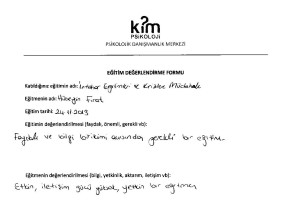 kim
PSİKOLOJİ
PSİKOLOJİK DANIŞMANLIK MERKEZİ
EĞİTİM DEĞERLENDİRME FORMU
Katıldığınız eğitimin adı: İntihar Girişimleri ve Krizlere Müdahale
Eğitmenin adı: Hüseyin Fırat
Eğitim tarihi: 24.11.2013
Eğitimin değerlendirilmesi (faydalı, önemli, gerekli vb):
Faydalı ve bilgi birikim açısından gerekli bir eğitim.
Eğitmenin değerlendirilmesi (bilgi, yetkinlik, aktarım, iletişim vb):
Etkin, iletişim gücü yüksek, yetkin bir eğitmen